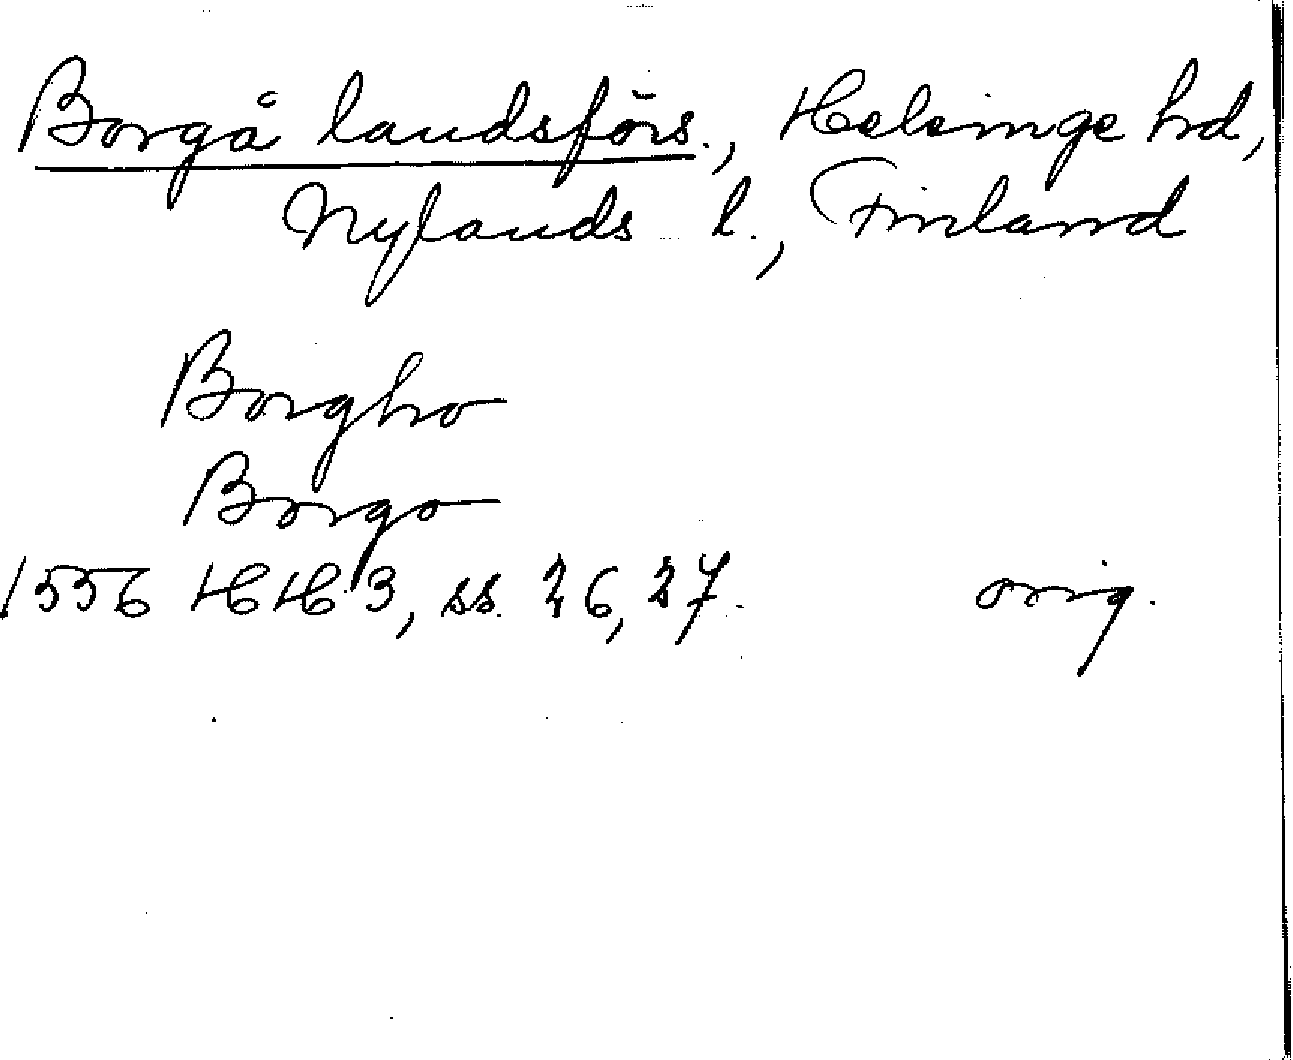 Borgå landsförs., Helsinge hd,
Nylands l., Finland
Borgho
Borgo
1556 HH 3, ss. 26, 27. orig.